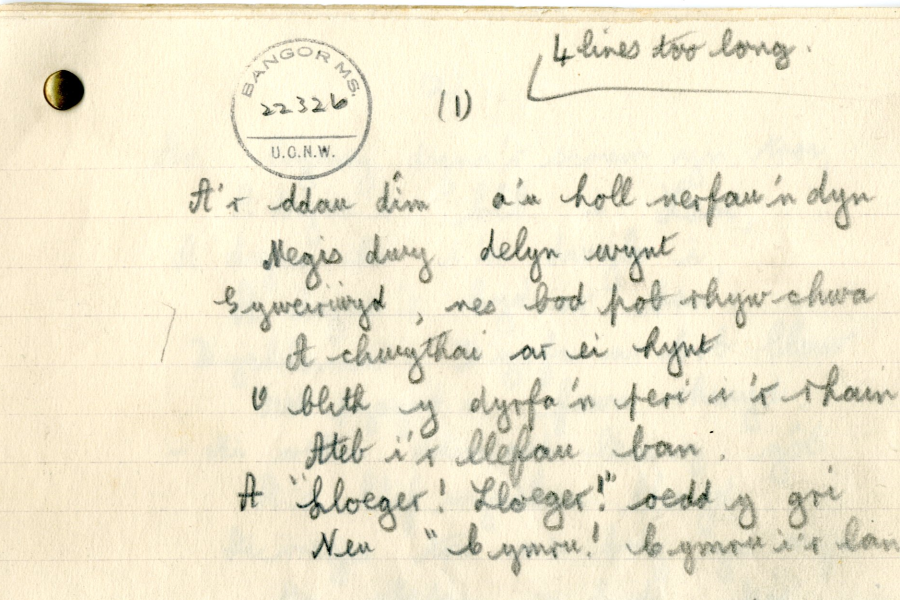 4 lines too long.
BANGOR MS.
22326
U.C.N.W.
(1)
A'r ddau dîm a'u holl nerfau'n dyn
Megis dwy delyn wynt
Gyweiriwyd, nes bod pob rhyw chwa
A chwythai ar ei hynt
O blith y dyrfa'n peri i'r rhain
Ateb i'r llefau ban.
A "Lloeger! Lloeger!" oedd y gri
Neu "Cymru! Cymru i'r lan